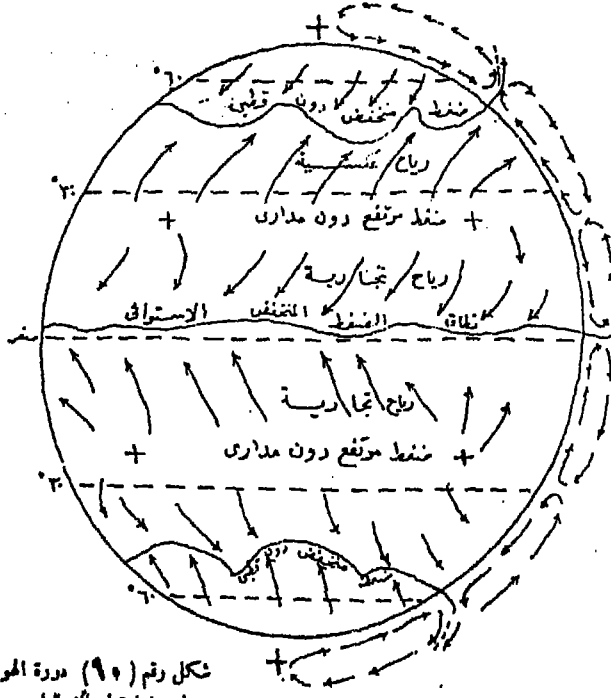 °٦٠
ضغط منخفض دون قطبي
رياح عكسية
°٣٠
ضغط مرتفع دون مدارى
رياح تجارية
نطاق الضغط المنخفض الاستوائى
صفر
رياح تجارية
ضغط مرتفع دون مدارى
°٣٠
ضغط منخفض دون قطبي
°٦٠
شكل رقم (٩٠) دورة الهو